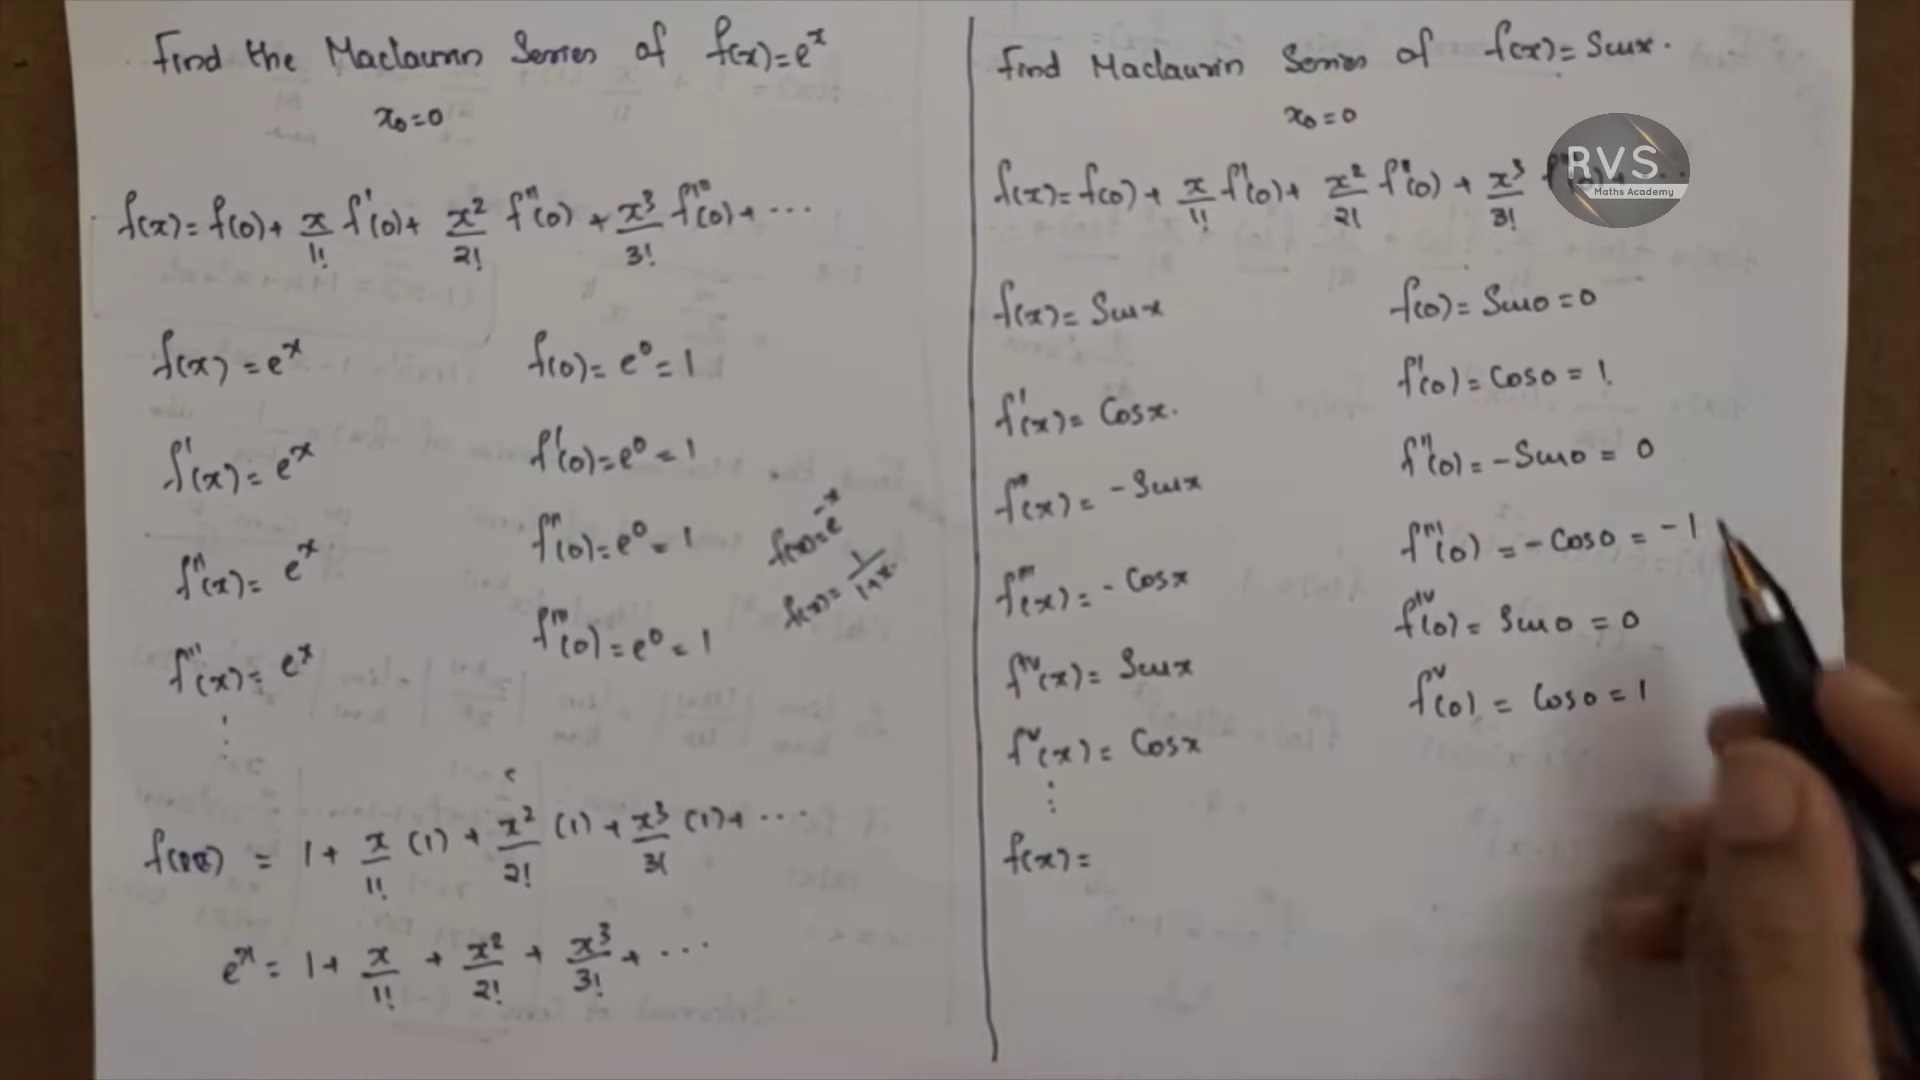 Find the Maclaurin Series of f(x)=e^x
x₀=0
f(x)=f(0)+ x/1! f'(0)+ x²/2! f''(0) + x³/3! f'''(0)+ ...
f(x)=e^x f(0)=e⁰=1
f'(x)=e^x f'(0)=e⁰=1
f''(x)=e^x f''(0)=e⁰=1
f'''(x)=e^x f'''(0)=e⁰=1
⋮
f(x)=e^-x
f(x)=1/1+x
= 1+ x/1! (1) + x²/2! (1) + x³/3! (1)+ ...
e^x = 1+ x/1! + x²/2! + x³/3! + ...
Find Maclaurin Series of f(x)=Sinx.
x₀=0
f(x)=f(0)+ x/1! f'(0)+ x²/2! f''(0) + x³/3!
RVS
Maths Academy
f(x)=Sinx f(0)=Sin0=0
f'(x)=Cosx. f'(0)=Cos0=1.
f''(x)=-Sinx f''(0)=-Sin0=0
f'''(x)=-Cosx f'''(0)=-Cos0=-1
f^iv(x)=Sinx f^iv(0)=Sin0=0
f^v(x)=Cosx f^v(0)=Cos0=1
⋮
f(x)=